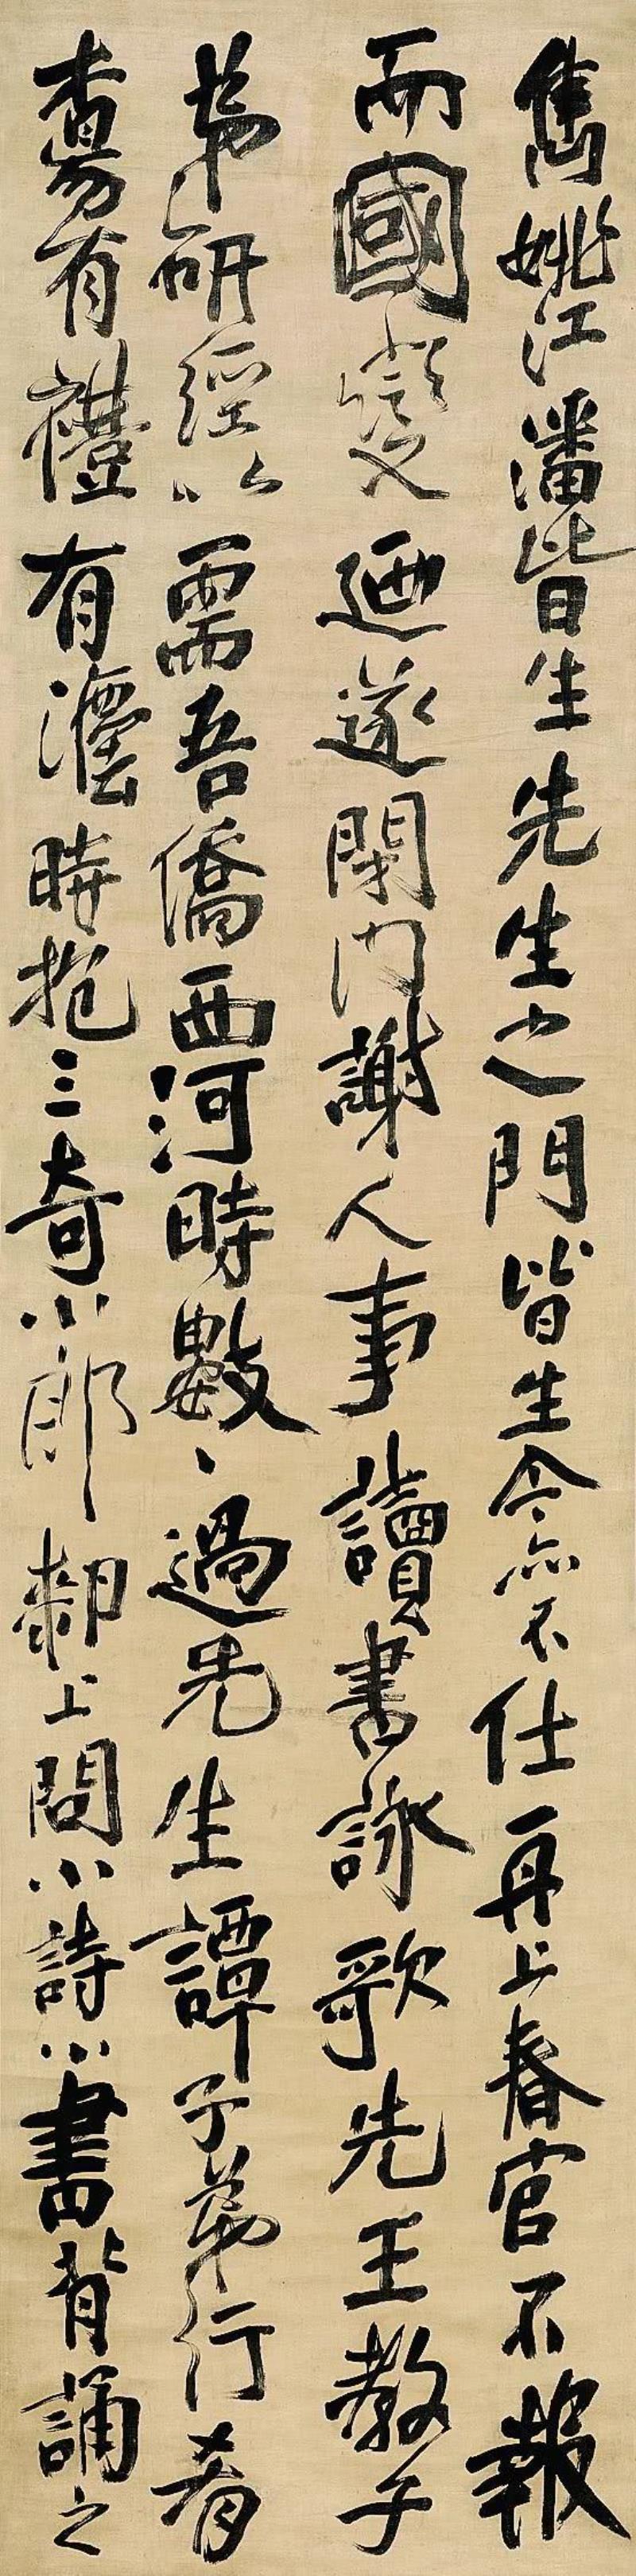 雋姚江潘皆生先生之門皆生今亦不仕再上春官不報
而國變迺遂閉門謝人事讀書詠歌先王教子
弟研經以需吾儕西河時數〻過先生譚子弟行肴
有禮有灋時抱三奇小郎㓗上問小詩小書背誦之